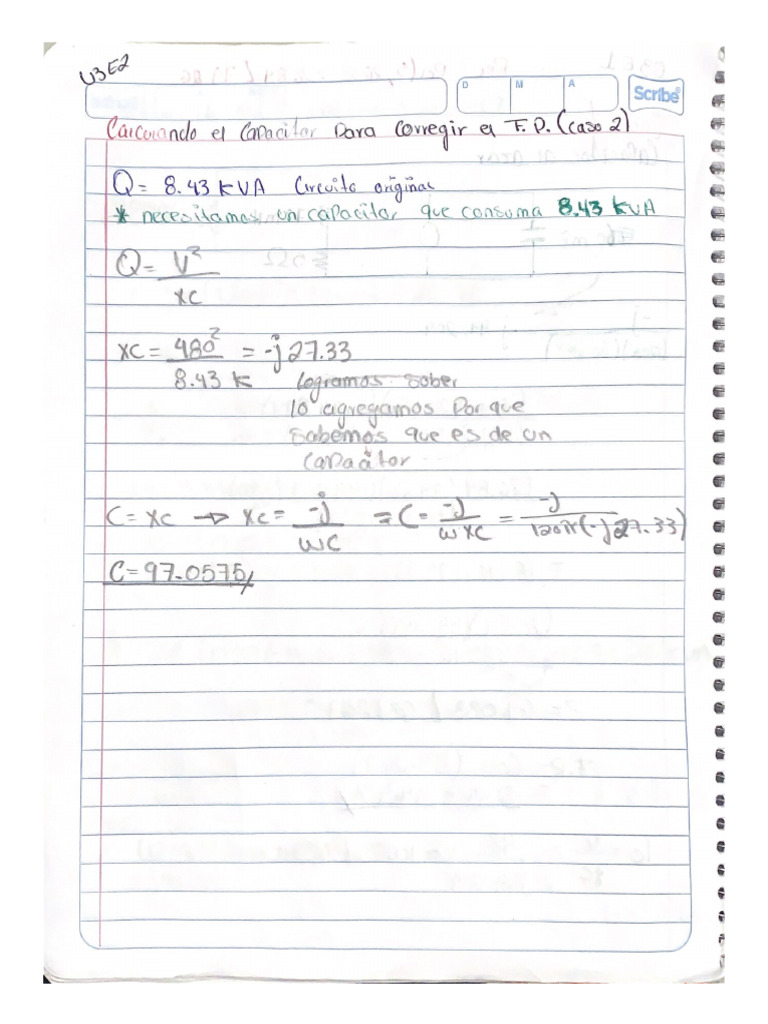 U3E2
D M A
Scribe
Calculando el Capacitor Para Corregir el F.P. (caso 2)
Q = 8.43 KVA Circuito original
* necesitamos un capacitor que consuma 8.43 KVA
Q = V²/xc
xc = 480²/8.43 k = -j27.33
logramos saber
lo agregamos Porque
sabemos que es de un
capacitor
C = xc → xc = -j/wc = C = -j/wxc = -j/120π(-j27.33)
C = 97.0575